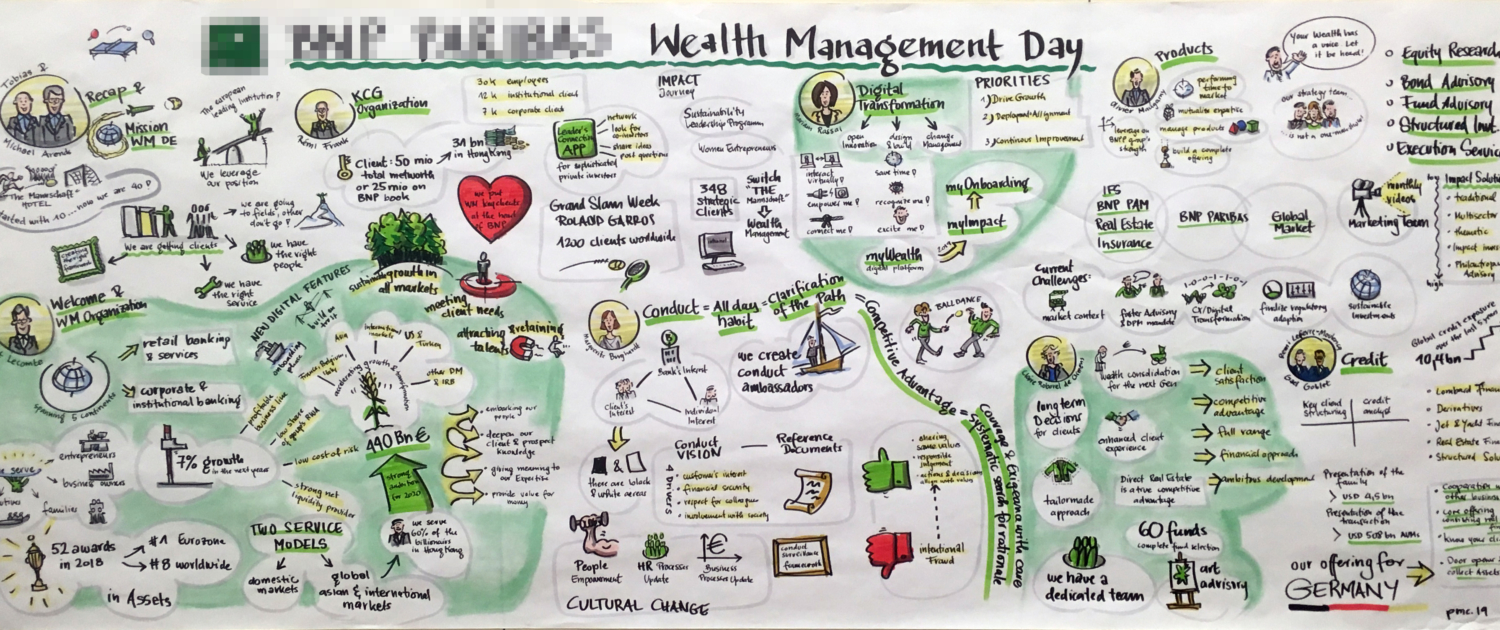 BNP PARIBAS Wealth Management Day
Tobias &
Michael Arends
Recap &
Mission
WM DE
The european
leading institution?
We leverage
our position
"The Mannschaft"
HOTEL
started with 10.... now we are 40?
we are going
to fields, other
don't go?
We are getting clients
we have
the right
people
we have
the right
service
KCG
Organization
30k employees
12k institutional client
7k corporate client
Client: 50 mio
total networth
or 25 mio on
BNP book
34 bn
in Hongkong
Leader's
Connection
APP
network
look for
share ideas
post questions
for sophisticated
private investors
we put
at the heart
of BNP
Grand Slam Week
ROLAND GARROS
1200 clients worldwide
IMPACT
Journey
Sustainability
Leadership Programm
Women Entrepreneurs
348
strategic
clients
Switch
"THE
Mannschaft"
Wealth
Management
Digital
Transformation
open
innovation
design
& build
change
Management
PRIORITIES
1) Drive Growth
2) Deployment/Alignment
3) Continous Improvement
interact
virtually?
save time?
empower me?
recognize me?
connect me?
excite me?
myOnboarding
myImpact
myWealth
digital platform
Products
performing
time to
market
mutualize expertise
leverage on
BNPP group's
strength
manage products
build a complete
offering
Your Wealth has
a voice. Let
it be heard!
our strategy team..
is not a one-man-show!
Equity Research
Bond Advisory
Fund Advisory
Structured Inst.
Execution Service
IFS
BNP PAM
Real Estate
Insurance
BNP PARIBAS
Global
Market
monthly
videos
Marketing team
high
Impact Solutions
traditional
Multisector
thematic
Impact
Philantropic
Advisory
Welcome &
WM Organization
Lecomte
spanning 5 continents
retail banking
& services
corporate &
institutional banking
NEW DIGITAL FEATURES
Sustainable growth in
all markets
meeting
client needs
attracting & retaining
talents
Asia
International
markets
US &
Turkey
France, Belgium,
Italy
other DM
& IRB
accelerating growth & transformation
low cost of risk
strong net
liquidity provider
440 Bn €
strong
ambition
for 2020
embarking our
people?
deepen our
client & prospect
knowledge
giving meaning to
our Expertise
provide value for
money
we serve
60% of the
billionairs
in Hong Kong
we serve
entrepreneurs
business owners
families
7% growth
in the next years
52 awards
in 2018
#1 Eurozone
#8 worldwide
in Assets
TWO SERVICE
MODELS
domestic
markets
global
asian & international
markets
Conduct = All day = Clarification
habit of the Path
= Competitive Advantage = Systematic search for rationale
Bank's Interest
Client's
Interest
Individual
Interest
we create
conduct
ambassadors
BALLDANCE
there are black
& white areas
Conduct — Reference
VISION Documents
4 Drivers
customer's interest
financial security
respect for colleague
involvement with society
sharing
same value
responsible
judgement
actions & decisions
align with value
intentional
Fraud
People
Empowerment
HR Processes
Update
Business
Processes Update
conduct
surveillance
framework
CULTURAL CHANGE
Current
Challenges:
market context
foster Advisory
& DPM mandate
CX/Digital
Transformation
finalize regulatory
adaption
Sustainable
Investments
long term
Decisions
for clients
wealth consolidation
for the next Gen.
enhanced client
experience
tailormade
approach
Direct Real Estate
is a true competitive
advantage
client
satisfaction
competitive
advantage
full range
financial approach
ambitious development
60 funds
complete fund selection
we have a
dedicated team
art
advisory
Credit
Key client
structuring
credit
analyst
Global credit exposure
over the last 5 years
10,4bn
Presentation of the
family
> USD 4,5 bn
Presentation of the
transaction
> USD 508 bn AUMs
Lombard
Derivatives
Jet & Yacht
Real Estate
Structured
Cooperation
other business
core offering
know your
Door opener
collect Assets
our offering for
GERMANY
pmc.19